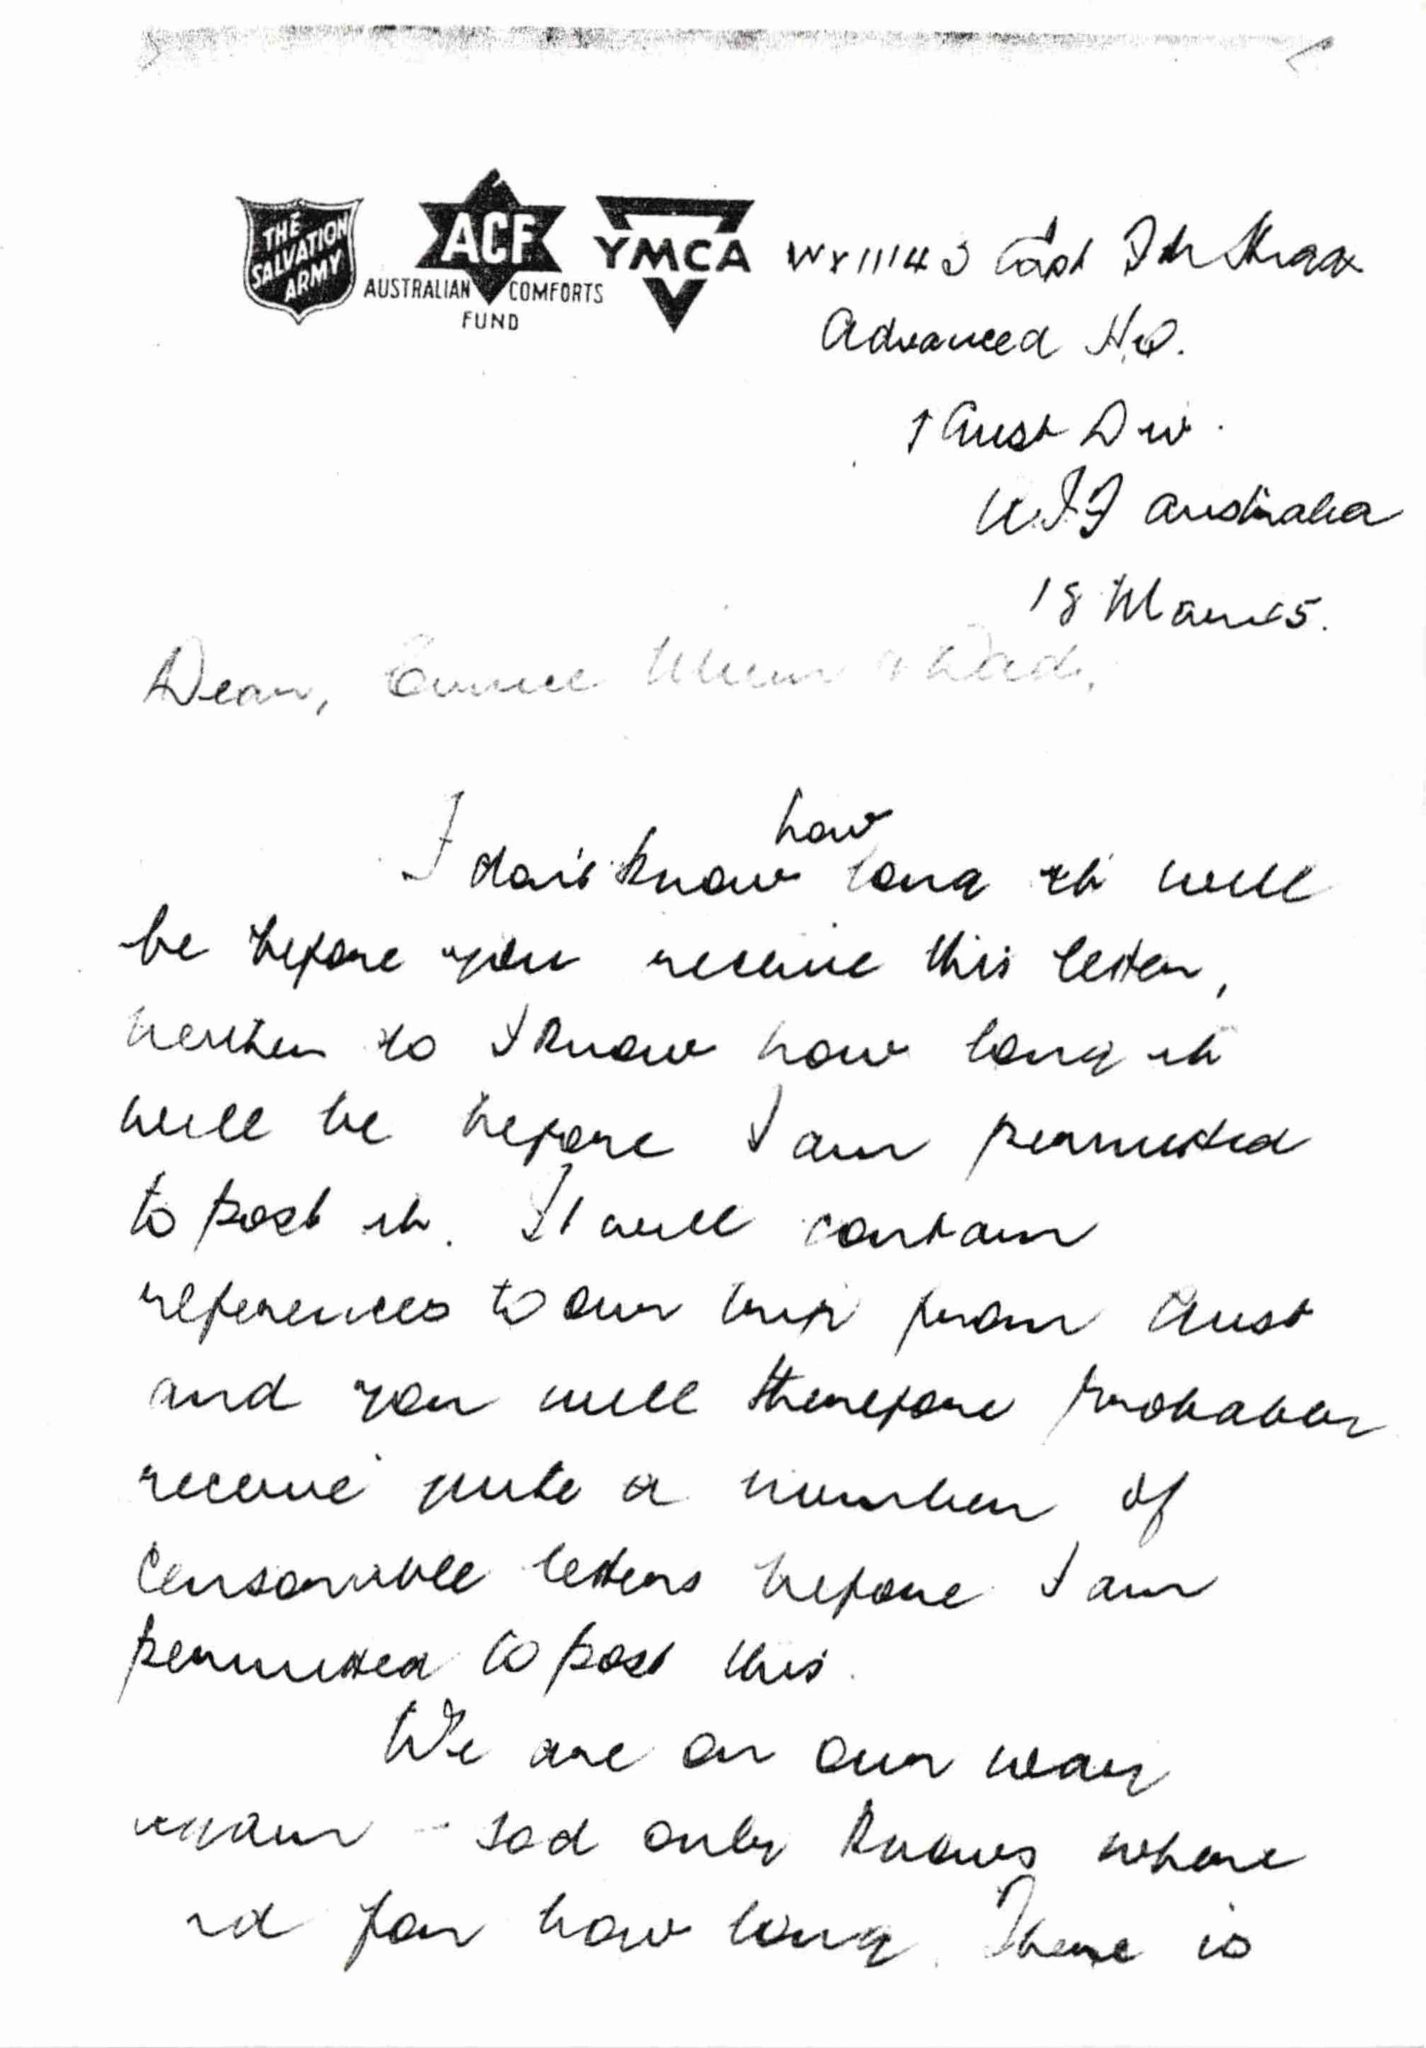 THE
SALVATION
ARMY
ACF
AUSTRALIAN COMFORTS
FUND
YMCA
WX11143 Capt
Advanced H.Q.
Aust Div.
AIF Australia
18 Mar 45.
Dear, Eunice Mum & Dad,
how
I don't know long it will
be before you receive this letter,
neither do I know how long it
will be before I am permitted
to post it. It will contain
references to our trip from Aust
and you will therefore probably
receive quite a number of
censorable letters before I am
permitted to post this.
We are on our way
again - God only knows where
and for how long. There is